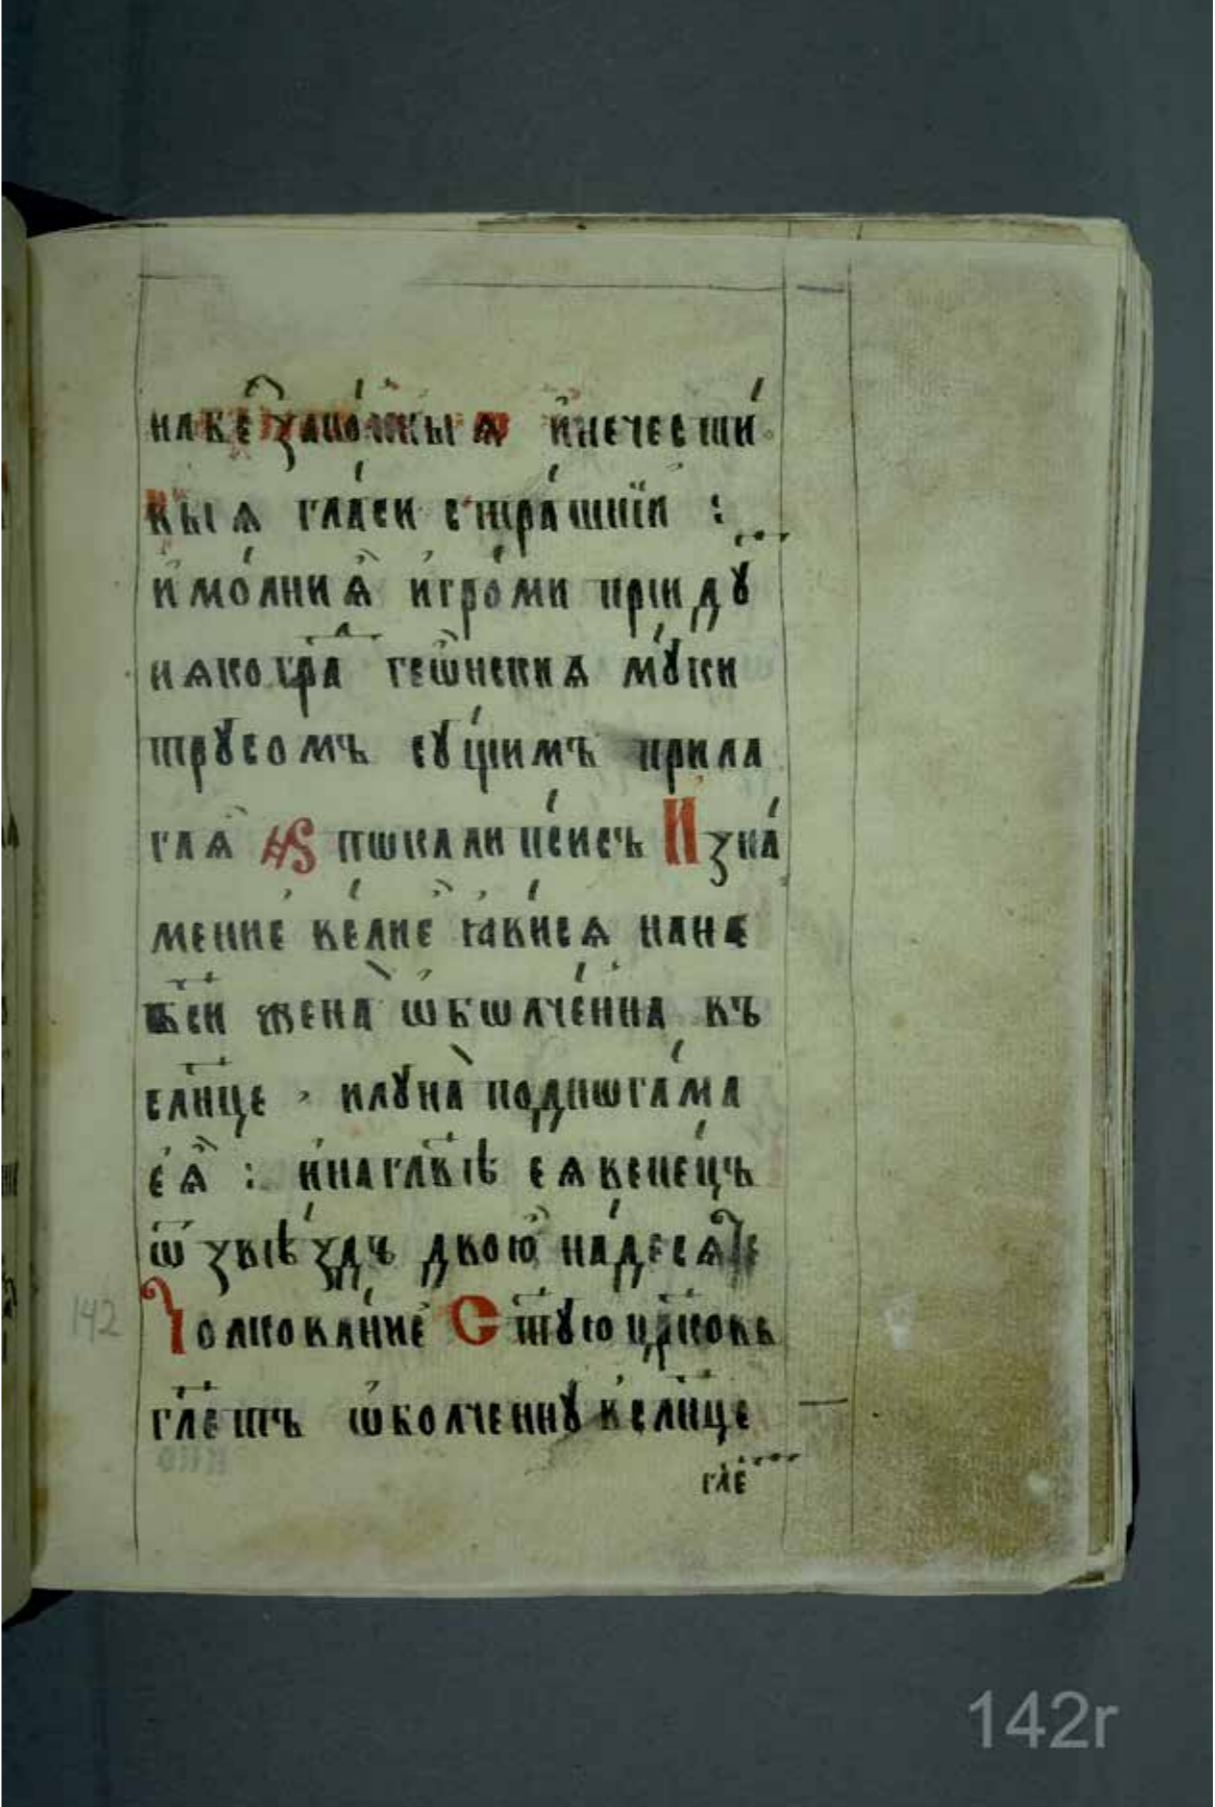 набе҆ззако́нныѧ и҆нечести́
выѧ гла́си стра́шнїи :
и҆мо́лниѧ̑ и҆гро́ми прїидꙋ
иѧкогра геѡ҆нскиѧ мꙋ́ки
трꙋсомъ сꙋ́щимъ прила
гаѧ҆ н҃ѕ пѡкали́псисъ И҆зна́
мение҆ ве́лие҆ ꙗ҆ви́сѧ нане
б҃си жена̀ ѡ҆бѡлче́нна въ
сл҃нце , илꙋна̀ подногѡ́ма
е҆ѧ̑ : и҆наглв҃ѣ еѧвене́цъ
ѿ звѣ́здъ двою҆ на́десѧте
Толкова́ние҆ С т҃ꙋю цр҃ковь
гл҃етъ ѡ҆болченнꙋ в҆сл҃нце
гл҃е
142
142r